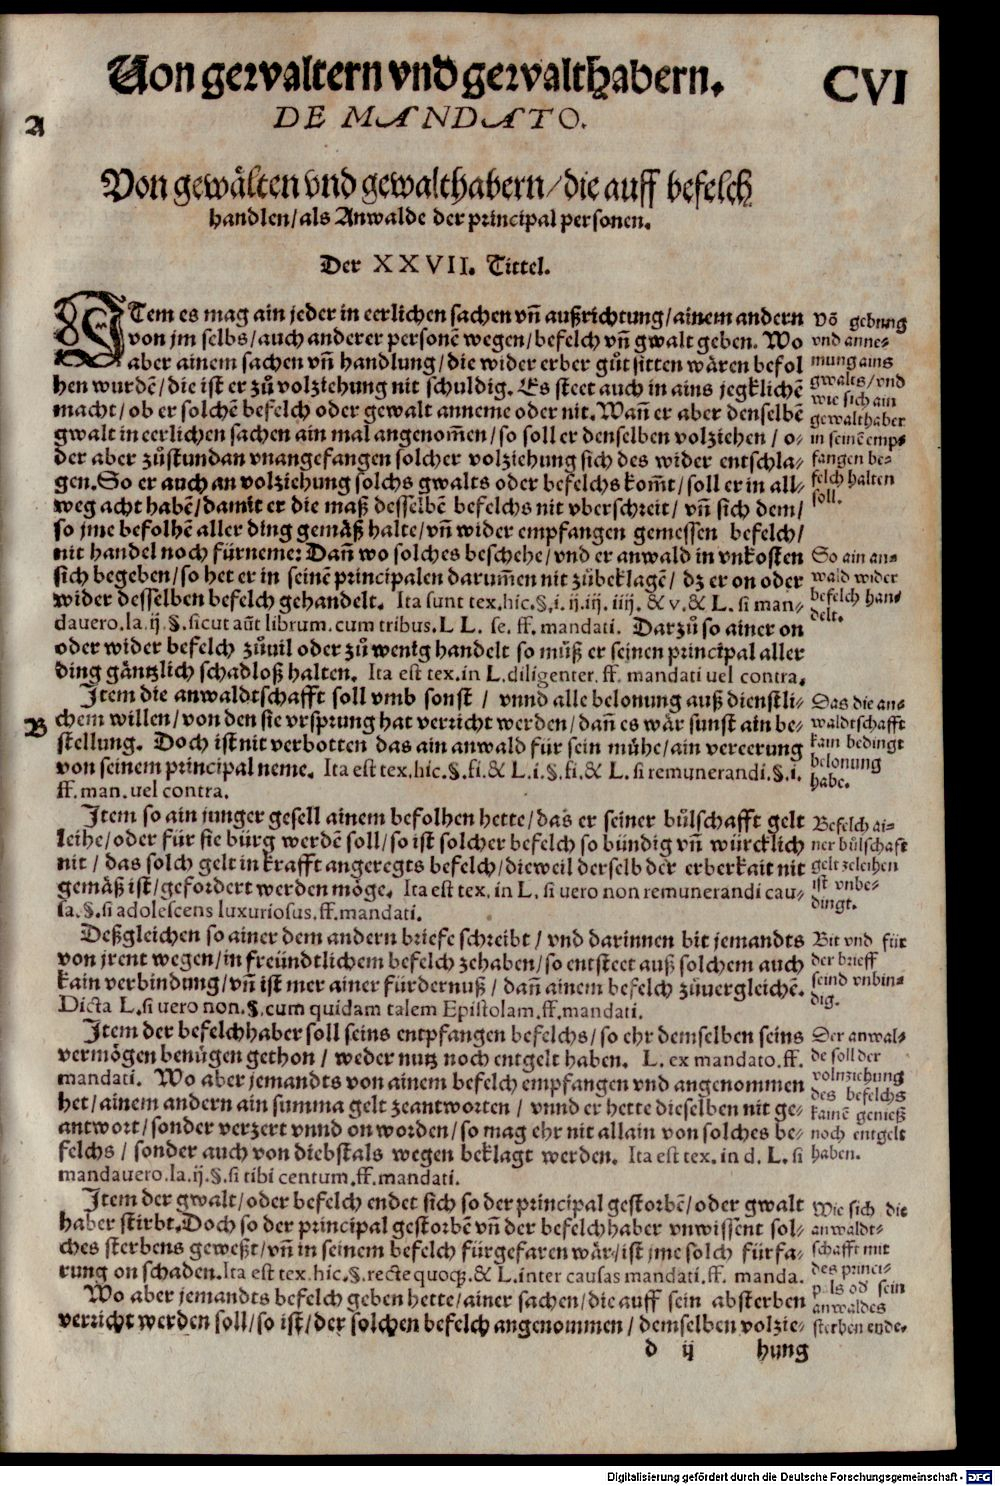 Von gewaltern vnd gewalthabern. CVI
DE MANDATO.
A
Von gewälten vnd gewalthabern/die auff befelch
handlen/als Anwalde der principal personen.
Der XXVII. Tittel.
ITem es mag ain jeder in eerlichen sachen vn̄ außrichtung/ainem andern
von jm selbs/auch anderer personē wegen/befelch vn̄ gwalt geben. Wo
aber ainem sachen vn̄ handlung/die wider erber gůt sitten wären befol
hen wurdē/die ist er zů volziehung nit schuldig. Es steet auch in ains jegklichē
macht/ob er solchē befelch oder gewalt anneme oder nit. Wan̄ er aber denselbē
gwalt in eerlichen sachen ain mal angenom̄en/so soll er denselben volziehen/o-
der aber zůstundan vnangefangen solcher volziehung sich des wider entschla-
gen. So er auch an volziehung solchs gwalts oder befelchs kom̄t/soll er in all-
weg acht habē/damit er die maß desselbē befelchs nit vberschreit/vn̄ sich dem/
so jme befolhen aller ding gemäß halte/vn̄ wider empfangen gemessen befelch/
nit handel noch fürneme: Dan̄ wo solches beschehe/vnd er anwald in vnkosten
sich begeben/so het er in seinē principalen darum̄en nit zůbeklagē/dz er on oder
wider desselben befelch gehandelt. Ita sunt tex.hic.§.i.ij.iij.iiij.& v.& L. si man-
dauero.la.ij.§.sicut aūt librum.cum tribus.L L. se. ff. mandati. Darzů so ainer on
oder wider befelch zůuil oder zů wenig handelt so můß er seinen principal aller
ding gäntzlich schadloß halten. Ita est tex.in L.diligenter.ff. mandati uel contra.
Item die anwaldtschafft soll vmb sonst / vnnd alle belonung auß dienstli-
B
chem willen/von den sie vrsprung hat verricht werden/dan̄ es wär sunst ain be-
stellung. Doch ist nit verbotten das ain anwald für sein mühe/ain vereerung
von seinem principal neme. Ita est tex.hic.§.fi.& L.i.§.fi.& L.si remunerandi.§.i.
ff.man.uel contra.
Item so ain junger gesell ainem befolhen hette/das er seiner bůlschafft gelt
leihe/oder für sie bürg werdē soll/so ist solcher befelch so bündig vn̄ würcklich
nit/das solch gelt in krafft angeregts befelch/dieweil derselb der erberkait nit
gemäß ist/gefordert werden möge. Ita est tex.in L.si vero non remunerandi cau-
sa.§.si adolescens luxuriosus.ff.mandati.
Deßgleichen so ainer dem andern briefe schreibt/vnd darinnen bit jemandts
von jrent wegen/in freündtlichem befelch zehaben/so entsteet auß solchem auch
kain verbindung/vn̄ ist mer ainer fürdernuß/dan̄ ainem befelch zůuergleichē.
Dicta L.si vero non.§.cum quidam talem Epistolam.ff.mandati.
Item der befelchhaber soll seins entpfangen befelchs/so ehr demselben seins
vermögen benügen gethon/weder nutz noch entgelt haben. L.ex mandato.ff.
mandati. Wo aber jemandts von ainem befelch empfangen vnd angenommen
het/ainem andern ain summa gelt zeantworten/vnnd er hette dieselben nit ge-
antwort/sonder verzert vnnd on worden/so mag ehr nit allain von solches be-
felchs/sonder auch von diebstals wegen beklagt werden. Ita est tex.in d. L. si
mandavero.la.ij.§.si tibi centum.ff.mandati.
Item der gwalt/oder befelch endet sich so der principal gestorbē/oder gwalt
haber stirbt. Doch so der principal gestorbē vn̄ der befelchhaber vnwissent sol-
ches sterbens geweßt/vn̄ in seinem befelch fürgefaren wär/ist jme solch fürfa-
rung on schaden. Ita est tex.hic.§.recte quoq;.& L.inter causas mandati.ff. manda.
Wo aber jemandts befelch geben hette/ainer sachen/die auff sein absterben
verricht werden soll/so ist/der solchen befelch angenommen/demselben volzie-
d ij hung
Vō gebung
vnd anne-
mung ains
gwalts/vnd
wie sich ain
gewalthaber
in seinē emp-
fangen be-
felch halten
soll.
So ain an-
wald wider
befelch han-
delt.
Das die an-
waldtschafft
kain bedingt
belonung
habe.
Befelch ai-
ner bůlschaft
gelt zeleihen
ist vnbe-
dingt.
Bit vnd für
der brieff
seind vnbin-
dig.
Der anwal-
de soll der
volnziehung
des befelchs
kainē genieß
noch entgelt
haben.
Wie sich die
anwaldt-
schafft mit
des princi-
pals od sein
anwaldes
sterben ende.
Digitalisierung gefördert durch die Deutsche Forschungsgemeinschaft - DFG